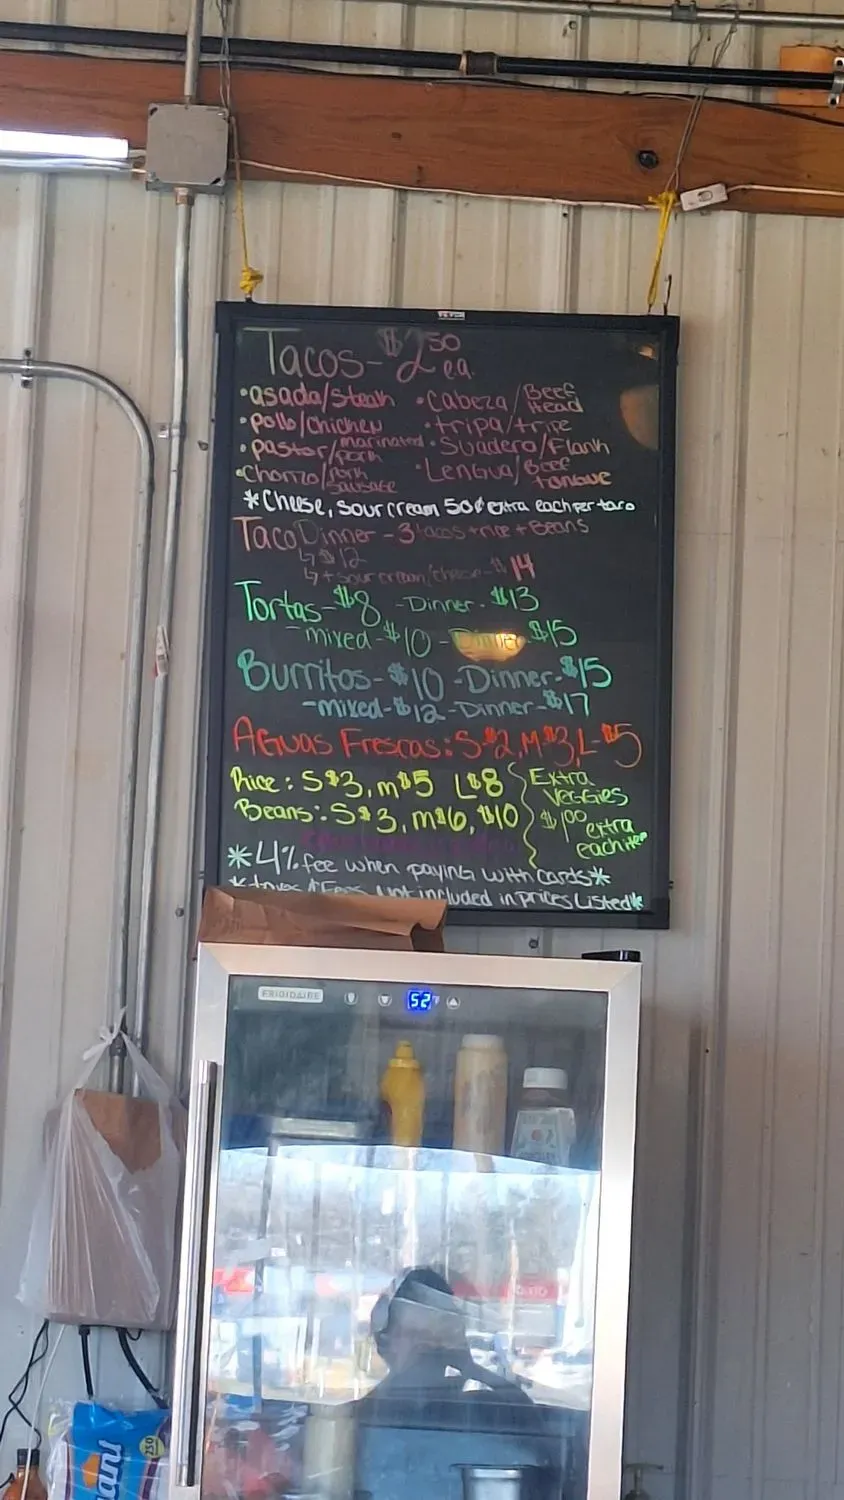 Tacos - $2.50 ea.
• asada/steak • Cabeza/Beef Head
• pollo/chicken • tripa/tripe
• pastor/marinated pork • Suadero/Flank
• Chorizo/pork sausage • Lengua/Beef tongue
*Cheese, sour cream 50¢ extra each per taco
Taco Dinner - 3 tacos + rice + Beans
↳ $12
↳ + sour cream/cheese - $14
Tortas - $8 - Dinner - $13
- mixed - $10 - Dinner - $15
Burritos - $10 - Dinner - $15
- mixed - $12 - Dinner - $17
Aguas Frescas: S $2, M $3, L - $5
Rice: S $3, m $5 L $8
Beans: S $3, m $6, $10
Extra
Veggies
$1.00
extra
each
*4% fee when paying with cards*
* taxes & Fees Not included in prices Listed*
FRIGIDAIRE
52
230